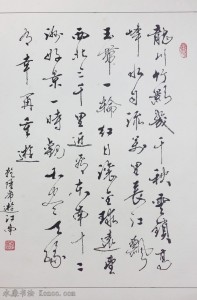 龍川竹影幾千秋雲鎖高
峰水自流萬里長江飄
玉帶一輪紅日滾金球遠望
西北三千里近看東南十二
洲好景一時觀不盡天緣
有幸再重遊
乾隆帝遊江南